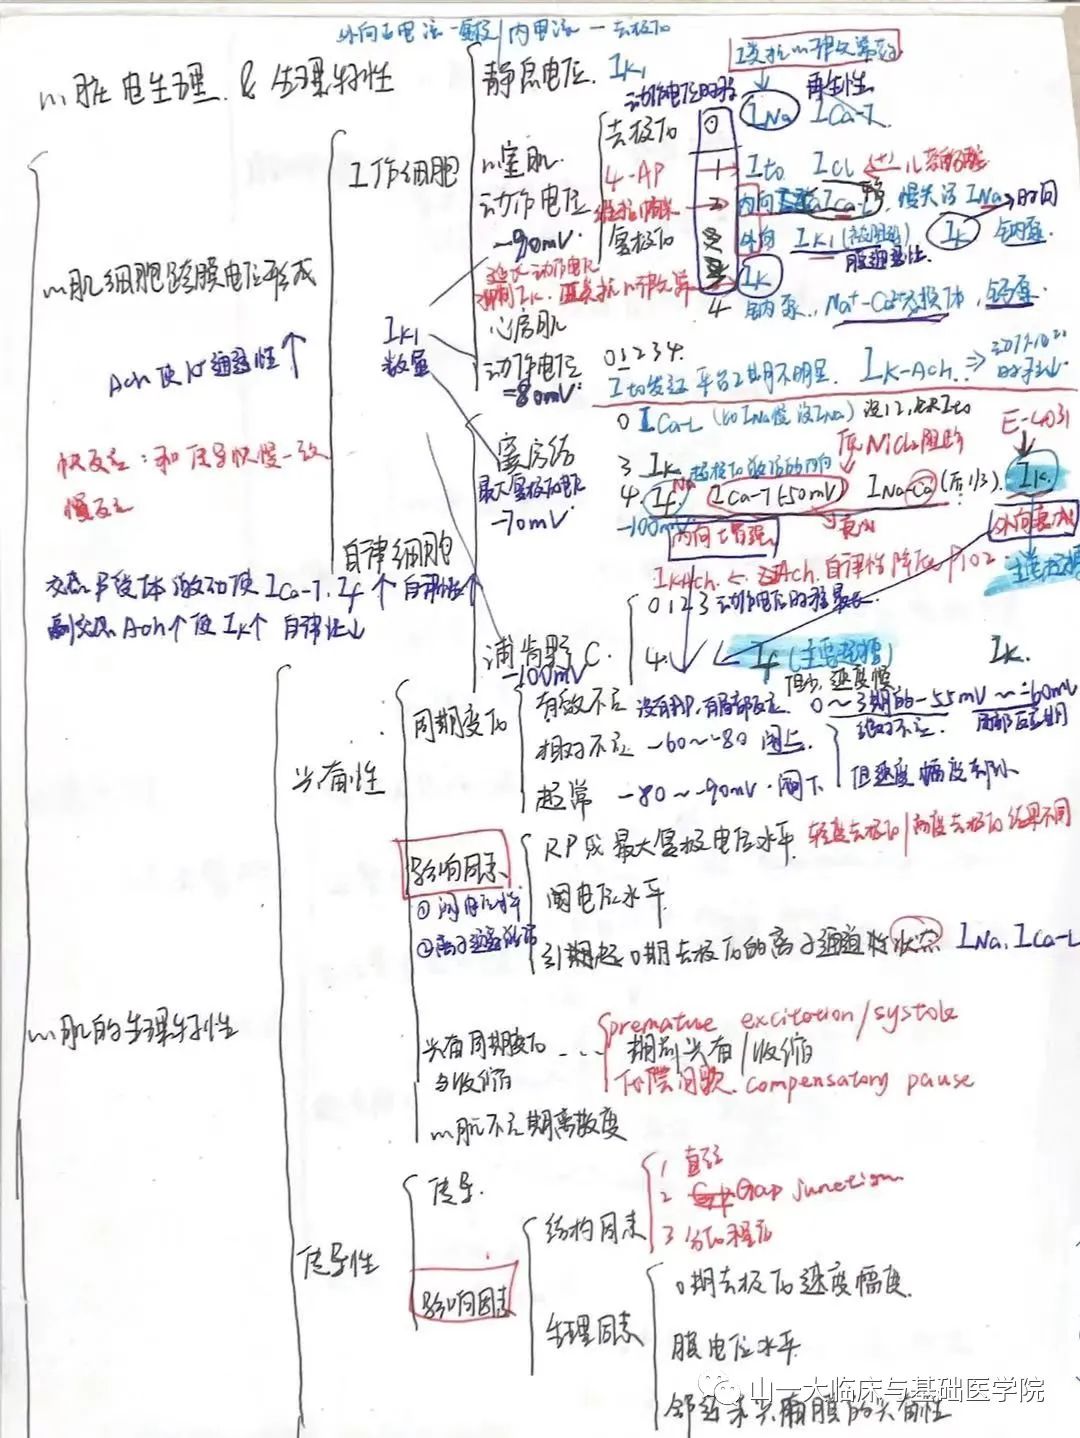 外向正电流-复极 内电流-去极化
心脏电生理 & 生理特性
静息电位 IK1
I类抗心律失常药
动作电位时程
再生性
INa ICa-T
工作细胞
心室肌
动作电位
-90mV
去极化 0
4-AP 1 Ito ICl
2 内向 ICa-L 慢失活 INa 时间
复极化 3 外向 IK1 IK 钠泵
IK
4 钠泵, Na+-Ca2+交换体, 钙泵
延长动作电位
抑制IK. III类抗心律失常
心肌细胞跨膜电位形成
IK1
数量
心房肌
动作电位
-80mV
0 1 2 3 4
Ito发达 平台2期不明显 IK-Ach
Ach使K+通透性↑
快反应: 和传导快慢一致
慢反应
窦房结
最大复极电位
-70mV
0 ICa-L
没12, 缺Ito
被NiCl2阻断
E-4031
3 IK
4 If ICa-T(-50mV) INa-Ca(后1/3) IK
-100mV
内向↑增强
外向衰减
自律细胞
IKAch ← Ach 自律性降低 P102
ICa-T. If↑ 自律性↑
副交感Ach↑使IK↑ 自律性↓
浦肯野C
-100mV
0 1 2 3 动作电位时程最长
4 If (主要起搏) IK
但少, 速度慢
兴奋性
周期变化
有效不应 没有AP, 有局部反应 0~3期的-55mV~-60mV
绝对不应 局部反应期
相对不应 -60~-80 阈上
超常 -80~-90mV 阈下
但速度幅度都小
影响因素
①阈电位水平
RP或最大复极电位水平
轻度去极化/高度去极化结果不同
阈电位水平
引起0期去极化的离子通道状态 INa, ICa-L
心肌的生理特性
兴奋周期变化
与收缩
premature excitation/systole
期前兴奋/收缩
代偿间歇 compensatory pause
心肌不应期离散度
传导性
传导
影响因素
结构因素
1 直径
2 Gap junction
3 分化程度
生理因素
0期去极化速度幅度
膜电位水平
邻近未兴奋膜的兴奋性
山一大临床与基础医学院